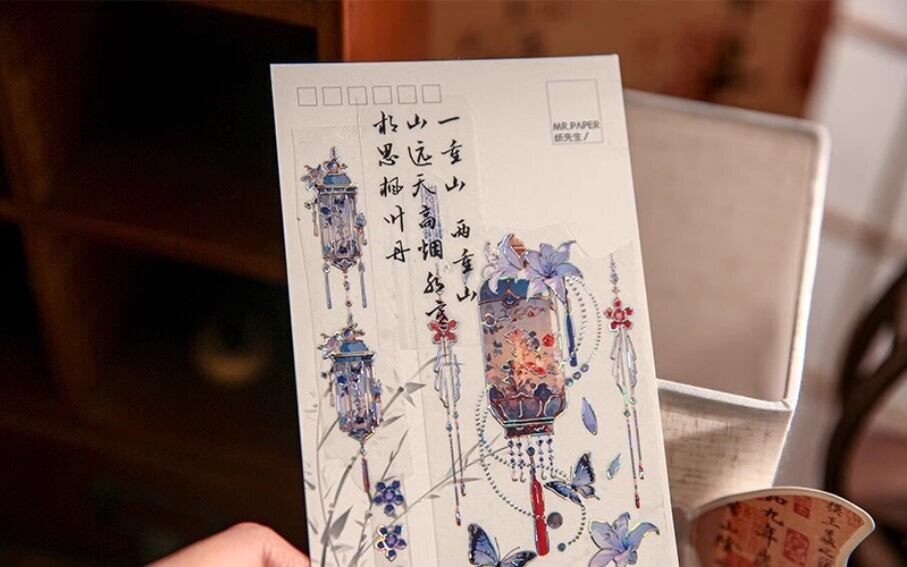 一重山 两重山
山远天高烟水寒
相思枫叶丹
MR.PAPER
纸先生/
九年